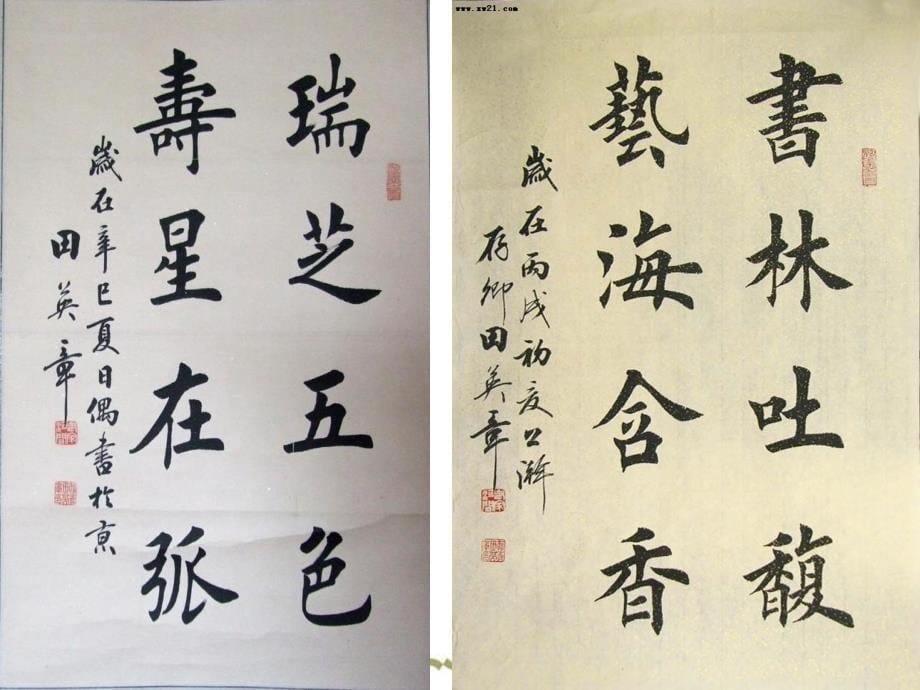 瑞芝五色
壽星在弧
歲在辛巳夏日偶書於京
田英章
www.xw21.com
書林吐馥
藝海含香
歲在丙戌初夏
存卿田英章